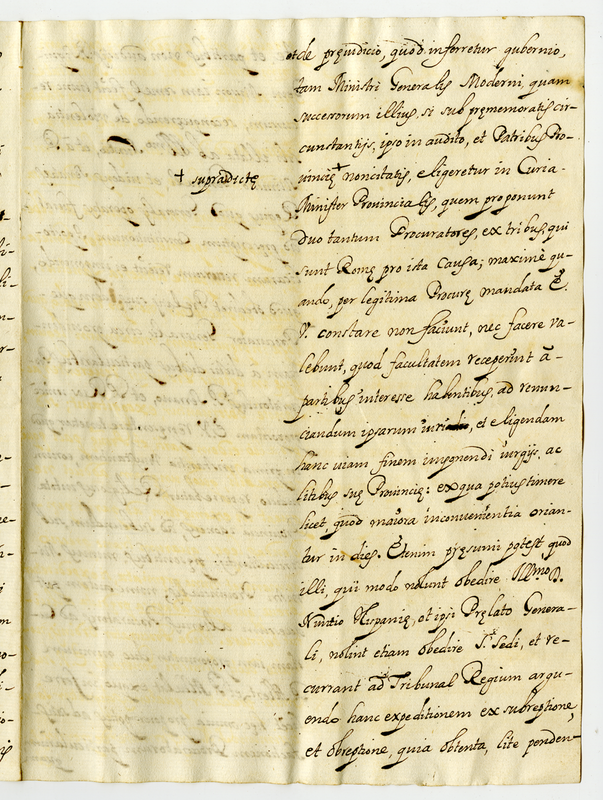 et de pręiudicio, quod inferretur gubernio,
tam Ministri Generalis Moderni, quam
succesorum illius, si sub pręmemoratis cir-
cunstantijs, ipso in audito, et Patribus Pro-
uincię + non citatis, eligeretur in Curia
+ supradictę
Minister Prouincialis, quem proponunt
duo tantum Procuratores, ex tribus, qui
sunt Romę pro ista Causa; maximè qu-
ando, per legitima Procurę mandata E.
V. constare non faciunt, nec facere va-
lebunt, quod facultatem receperint à
partibus interesse habentibus, ad renun-
ciandum ipsarum iuri, et eligendam
hanc uiam finem imponendi iurgijs, ac
litibus suę Prouincię: ex qua potius timere
licet, quod maiora inconuenientia orian-
tur in dies. Etenim pręsumi potest, quod
illi, qui modo nolunt obedire Illmo. D.
Nuntio Hispanię, et ipsi Prelato Genera-
li, nolint etiam obedire S. Sedi, et re-
currant ad Tribunal Regium argu-
endo hanc expeditionem ex subreptione,
et obreptione, quia obtenta, lite penden-